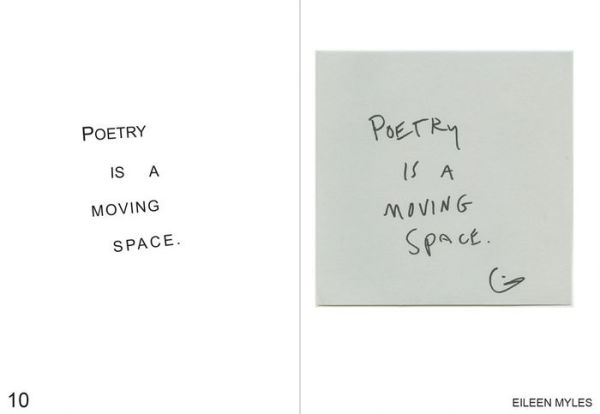 POETRY
IS A
MOVING
SPACE.
10
POETRY
IS A
MOVING
SPACE.
EILEEN MYLES